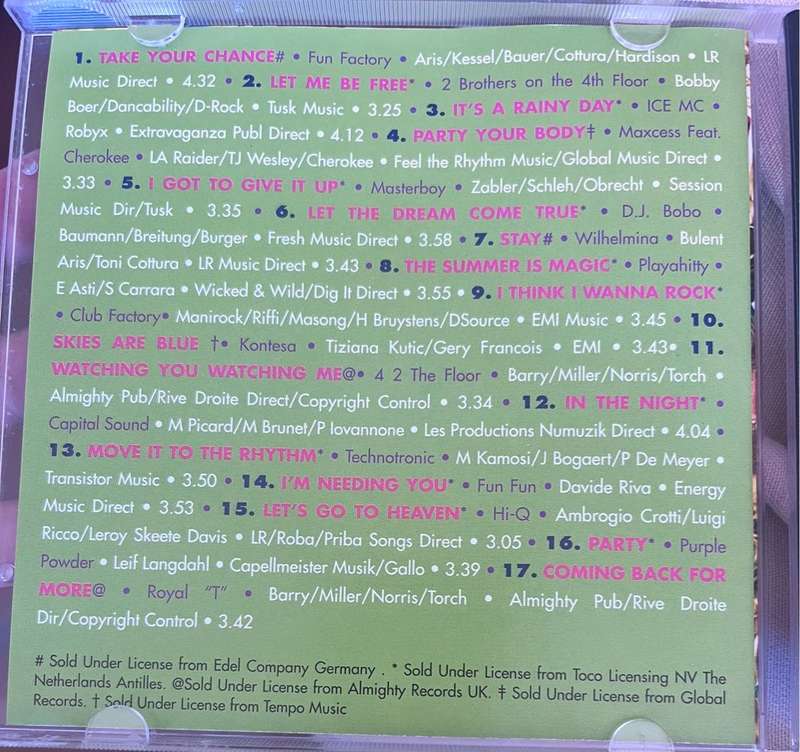 1. TAKE YOUR CHANCE# • Fun Factory • Aris/Kessel/Bauer/Cottura/Hardison • LR
Music Direct • 4.32 • 2. LET ME BE FREE* • 2 Brothers on the 4th Floor • Bobby
Boer/Dancability/D-Rock • Tusk Music • 3.25 • 3. IT'S A RAINY DAY* • ICE MC •
Robyx • Extravaganza Publ Direct • 4.12 • 4. PARTY YOUR BODY‡ • Maxcess Feat.
Cherokee • LA Raider/TJ Wesley/Cherokee • Feel the Rhythm Music/Global Music Direct •
3.33 • 5. I GOT TO GIVE IT UP* • Masterboy • Zabler/Schleh/Obrecht • Session
Music Dir/Tusk • 3.35 • 6. LET THE DREAM COME TRUE* • D.J. Bobo •
Baumann/Breitung/Burger • Fresh Music Direct • 3.58 • 7. STAY# • Wilhelmina • Bulent
Aris/Toni Cottura • LR Music Direct • 3.43 • 8. THE SUMMER IS MAGIC* • Playahitty •
E Asti/S Carrara • Wicked & Wild/Dig It Direct • 3.55 • 9. I THINK I WANNA ROCK*
• Club Factory• Manirock/Riffi/Masong/H Bruystens/DSource • EMI Music • 3.45 • 10.
SKIES ARE BLUE †• Kontesa • Tiziana Kutic/Gery Francois • EMI • 3.43• 11.
WATCHING YOU WATCHING ME@• 4 2 The Floor • Barry/Miller/Norris/Torch •
Almighty Pub/Rive Droite Direct/Copyright Control • 3.34 • 12. IN THE NIGHT* •
Capital Sound • M Picard/M Brunet/P Iovannone • Les Productions Numuzik Direct • 4.04 •
13. MOVE IT TO THE RHYTHM* • Technotronic • M Kamosi/J Bogaert/P De Meyer •
Transistor Music • 3.50 • 14. I'M NEEDING YOU* • Fun Fun • Davide Riva • Energy
Music Direct • 3.53 • 15. LET'S GO TO HEAVEN* • Hi-Q • Ambrogio Crotti/Luigi
Ricco/Leroy Skeete Davis • LR/Roba/Priba Songs Direct • 3.05 • 16. PARTY* • Purple
Powder • Leif Langdahl • Capellmeister Musik/Gallo • 3.39 • 17. COMING BACK FOR
MORE@ • Royal "T" • Barry/Miller/Norris/Torch • Almighty Pub/Rive Droite
Dir/Copyright Control • 3.42
# Sold Under License from Edel Company Germany . * Sold Under License from Toco Licensing NV The
Netherlands Antilles. @Sold Under License from Almighty Records UK. ‡ Sold Under License from Global
Records. † Sold Under License from Tempo Music